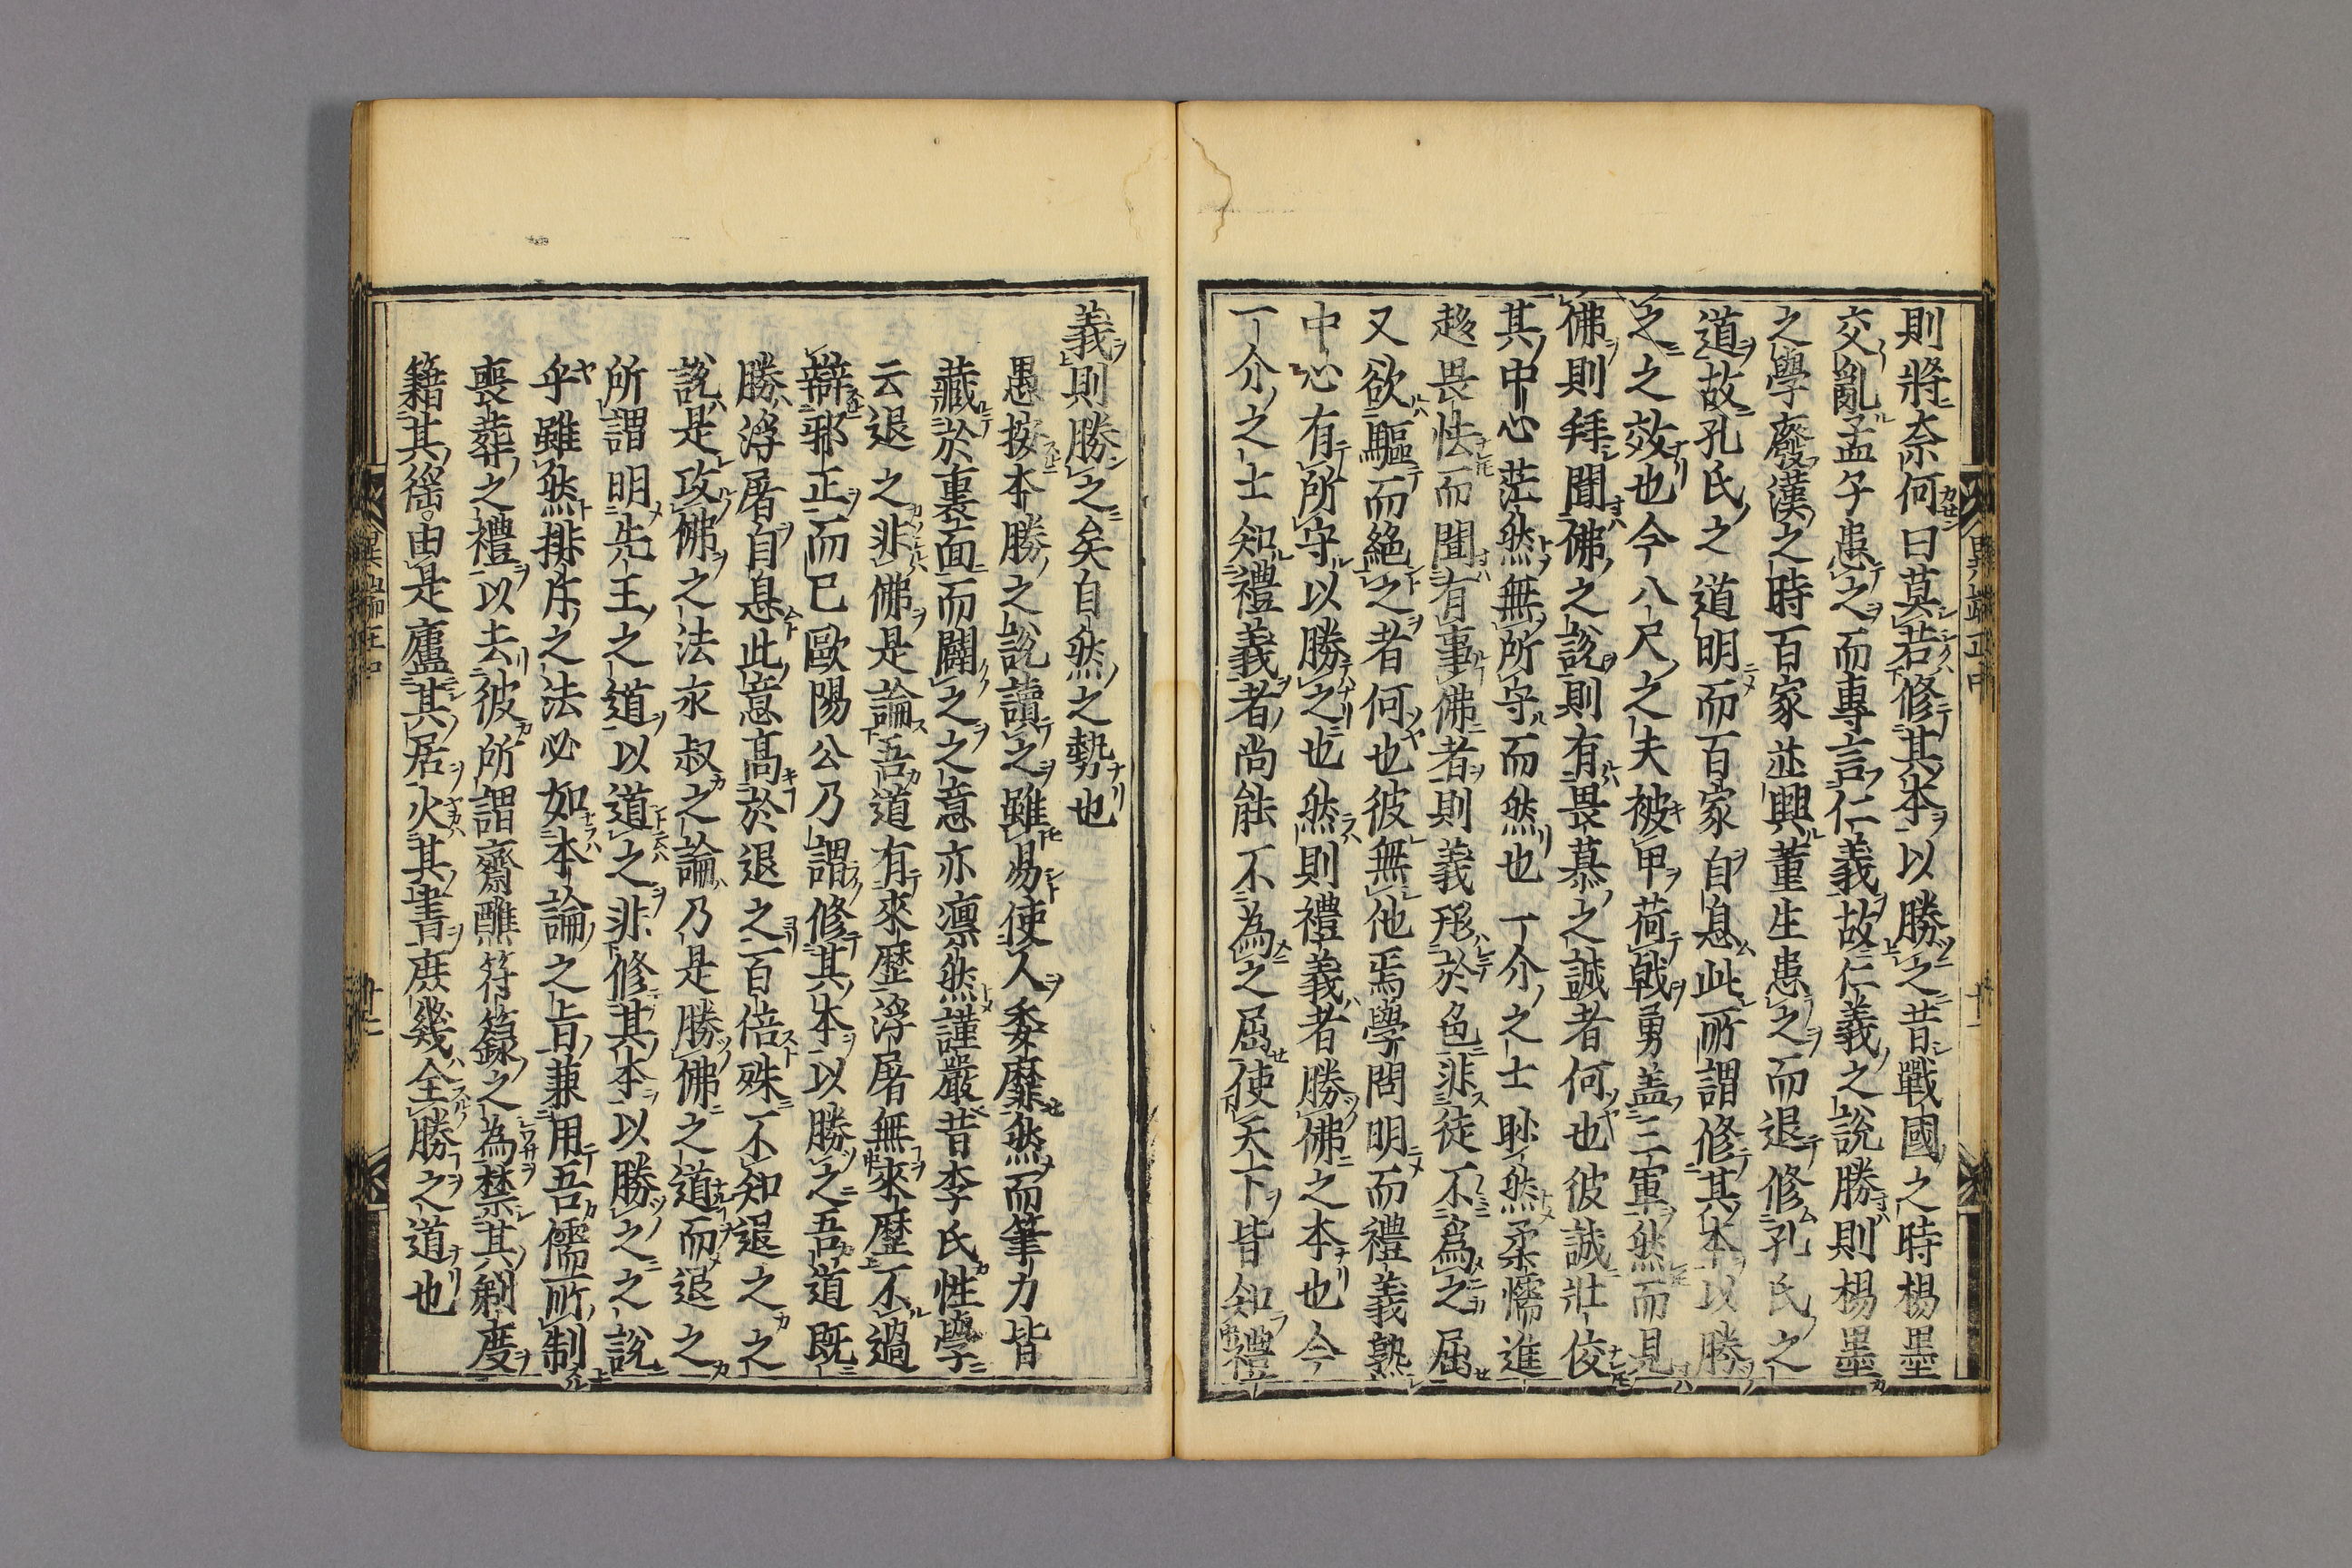 則將奈何曰莫若修其本以勝之昔戰國之時楊墨
交亂孟子患之而專言仁義故仁義之說勝則楊墨
之學廢漢之時百家並興董生患之而退修孔氏之
道故孔氏之道明而百家自息此所謂修其本以勝
之之效也今八尺之夫被甲荷戟勇盖三軍然而見
佛則拜聞佛之說則有畏慕之誠者何也彼誠壯佼
其中心茫然無所守而然也一介之士眇然柔懦進
趍畏怯而聞有事佛者則義形於色非徒不爲之屈
又欲驅而絕之者何也彼無他焉學問明而禮義熟
中心有所守以勝之也然則禮義者勝佛之本也今
一介之士知禮義者尚能不為之屈使天下皆知禮
義則勝之矣自然之勢也
愚按本勝之說讀之雖易使人委靡然而筆力皆
藏於裏面而闢之之意亦凛然謹嚴昔李氏性學
云退之非佛是論吾道有來歷浮屠無來歷不過
辯邪正而已歐陽公乃謂修其本以勝之吾道既
勝浮屠自息此意高於退之百倍殊不知退之之
說是攻佛之法永叔之論乃是勝佛之道而退之
所謂明先王之道以道之非修其本以勝之之說
乎雖然排斥之法必如本論之旨兼用吾儒所制
喪葬之禮以去彼所謂齋醮符籙之為禁其剃度
籍其徭由是廬其居火其書庶幾全勝之之道也
異端正中
十一
異端正中
十二